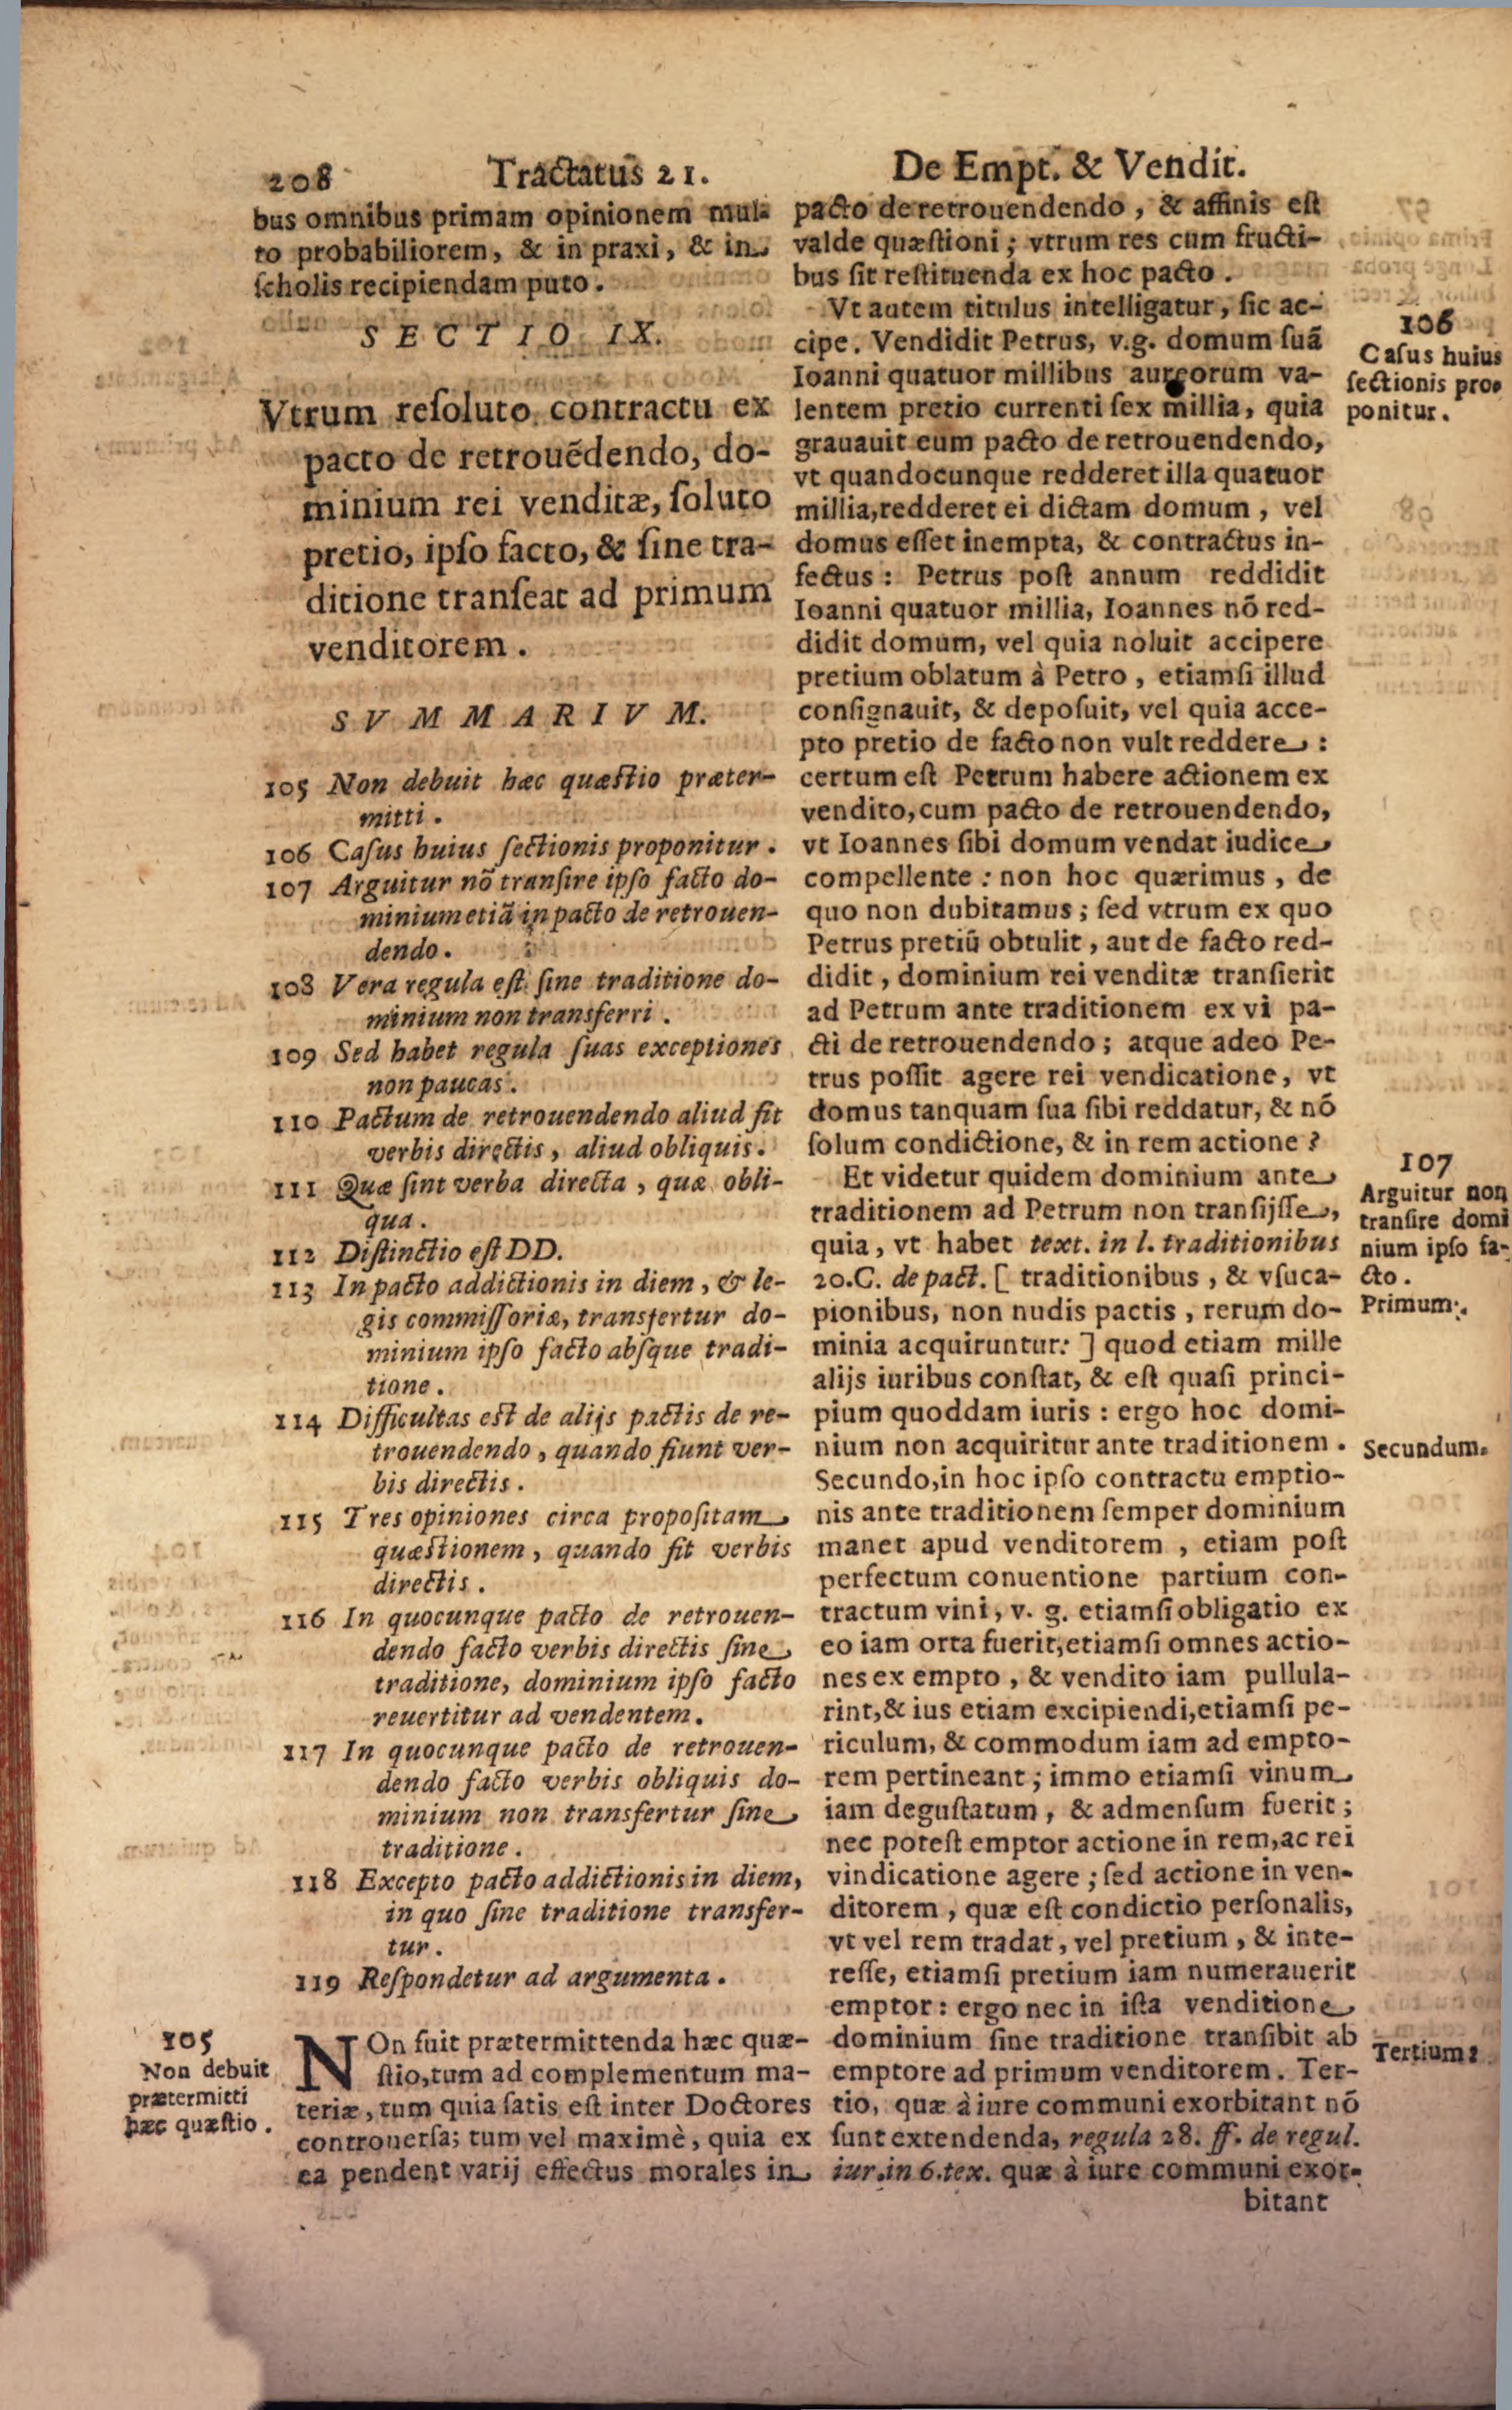 208 Tractatus 21. De Empt. & Vendit.
bus omnibus primam opinionem mul-
to probabiliorem, & in praxi, & in
ſcholis recipiendam puto.
SECTIO IX.
Vtrum reſoluto contractu ex
pacto de retrouẽdendo, do-
minium rei venditæ, ſoluto
pretio, ipſo facto, & ſine tra-
ditione tranſeat ad primum
venditorem.
SVMMARIVM.
105 Non debuit hæc quæſtio præter-
mitti.
106 Caſus huius ſectionis proponitur.
107 Arguitur nõ tranſire ipſo facto do-
minium etiã in pacto de retrouen-
dendo.
108 Vera regula eſt ſine traditione do-
minium non transferri.
109 Sed habet regula ſuas exceptiones
non paucas.
110 Pactum de retrouendendo aliud fit
verbis directis, aliud obliquis.
111 Quæ ſint verba directa, quæ obli-
qua.
112 Diſtinctio eſt DD.
113 In pacto addictionis in diem, & le-
gis commiſſoriæ, transfertur do-
minium ipſo facto abſque tradi-
tione.
114 Difficultas eſt de alijs pactis de re-
trouendendo, quando fiunt ver-
bis directis.
115 Tres opiniones circa propoſitam
quæſtionem, quando fit verbis
directis.
116 In quocunque pacto de retrouen-
dendo facto verbis directis ſine
traditione, dominium ipſo facto
reuertitur ad vendentem.
117 In quocunque pacto de retrouen-
dendo facto verbis obliquis do-
minium non transfertur ſine
traditione.
118 Excepto pacto addictionis in diem,
in quo ſine traditione transfer-
tur.
119 Reſpondetur ad argumenta.
105
Non debuit
prætermitti
hæc quæſtio.
NOn fuit prætermittenda hæc quæ-
ſtio, tum ad complementum ma-
teriæ, tum quia ſatis eſt inter Doctores
controuerſa; tum vel maximè, quia ex
ea pendent varij effectus morales in
pacto de retrouendendo, & affinis eſt
valde quæſtioni; vtrum res cum fructi-
bus ſit reſtituenda ex hoc pacto.
Vt autem titulus intelligatur, ſic ac-
cipe. Vendidit Petrus, v.g. domum ſuã
Ioanni quatuor millibus aureorum va-
lentem pretio currenti ſex millia, quia
grauauit eum pacto de retrouendendo,
vt quandocunque redderet illa quatuor
millia, redderet ei dictam domum, vel
domus eſſet inempta, & contractus in-
fectus: Petrus poſt annum reddidit
Ioanni quatuor millia, Ioannes nõ red-
didit domum, vel quia noluit accipere
pretium oblatum à Petro, etiamſi illud
conſignauit, & depoſuit, vel quia acce-
pto pretio de facto non vult reddere:
certum eſt Petrum habere actionem ex
vendito, cum pacto de retrouendendo,
vt Ioannes ſibi domum vendat iudice
compellente: non hoc quærimus, de
quo non dubitamus; ſed vtrum ex quo
Petrus pretiũ obtulit, aut de facto red-
didit, dominium rei venditæ tranſierit
ad Petrum ante traditionem ex vi pa-
cti de retrouendendo; atque adeo Pe-
trus poſſit agere rei vendicatione, vt
domus tanquam ſua ſibi reddatur, & nõ
ſolum condictione, & in rem actione?
Et videtur quidem dominium ante
traditionem ad Petrum non tranſijſſe,
quia, vt habet text. in l. traditionibus
20.C. de pact. [ traditionibus, & vſuca-
pionibus, non nudis pactis, rerum do-
minia acquiruntur: ] quod etiam mille
alijs iuribus conſtat, & eſt quaſi princi-
pium quoddam iuris: ergo hoc domi-
nium non acquiritur ante traditionem.
Secundo, in hoc ipſo contractu emptio-
nis ante traditionem ſemper dominium
manet apud venditorem, etiam poſt
perfectum conuentione partium con-
tractum vini, v. g. etiamſi obligatio ex
eo iam orta fuerit, etiamſi omnes actio-
nes ex empto, & vendito iam pullula-
rint, & ius etiam excipiendi, etiamſi pe-
riculum, & commodum iam ad empto-
rem pertineant; immo etiamſi vinum
iam deguſtatum, & admenſum fuerit;
nec poteſt emptor actione in rem, ac rei
vindicatione agere; ſed actione in ven-
ditorem, quæ eſt condictio perſonalis,
vt vel rem tradat, vel pretium, & inte-
reſſe, etiamſi pretium iam numerauerit
emptor: ergo nec in iſta venditione
dominium ſine traditione tranſibit ab
emptore ad primum venditorem. Ter-
tio, quæ à iure communi exorbitant nõ
ſunt extendenda, regula 28. ff. de regul.
iur. in 6. tex. quæ à iure communi exor-
bitant
106
Caſus huius
ſectionis pro-
ponitur.
107
Arguitur non
tranſire domi
nium ipſo fa-
cto.
Primum.
Secundum.
Tertium.